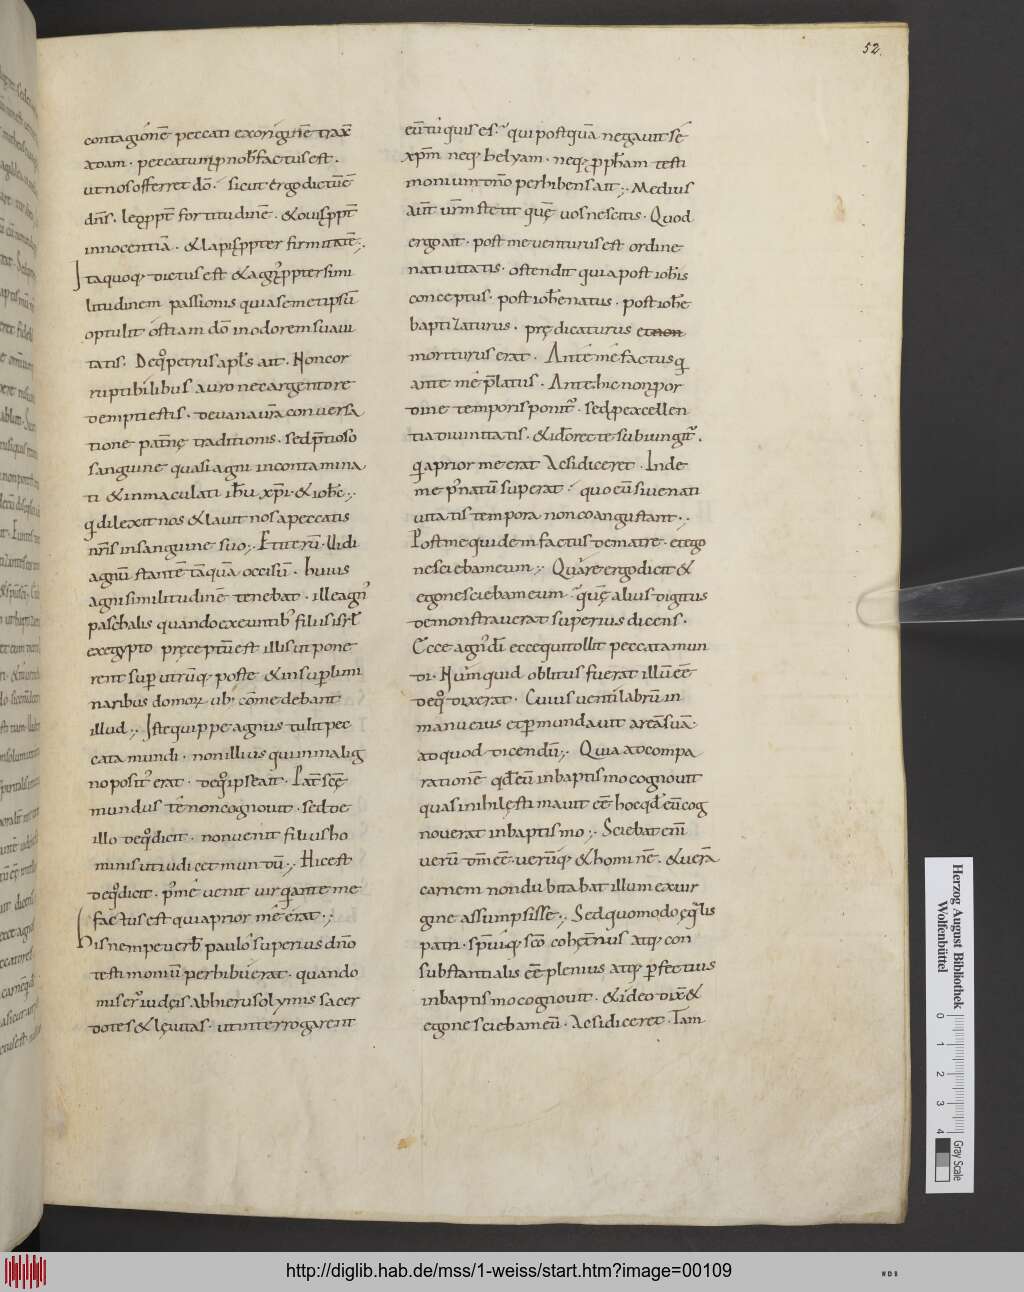 52.
contagionē peccati ex origine traxer̄
adam · peccatum ꝓ nob̄ factus est ·
ut nos offerret dō · sicut ergo dictus ē
dn̄s · leo ꝓpt̄ fortitudinē · & ouis ꝓpt̄
innocentiā · & lapis ꝓpter firmitatē ·
Itaquoq; dictus est & agn; ꝓpter simi
litudinem passionis quia semetipsū
optulit ostiam dō in odorem suaui
tatis · De quo petrus apl̄s ait · Non cor
ruptibilibus auro nec argento re
dempti estis · de uana ur̄a conuersa
tione patn̄ę traditionis · sed p̄tioso
sanguine quasi agni incontamina
ti & inmaculati ih̄u xp̄i · & ioh̄s ·
qui dilexit nos & lauit nos a peccatis
nr̄is in sanguine suo · Et iterū · Uidi
agnū stantē tāquā occisū · huius
agni similitudinē tenebat · ille agn;
paschalis quando exeuntib; filiis isrl̄
ex egypto pręceptū est illis ut pone
rent sup̄ utrūq; poste & in sup̄limi
naribus domoꝝ ubi cōmedebant
illud · Iste quippe agnus tulit pec
cata mundi · non illius qui in malig
no posit; erat · de quo ipse ait · Pat̄ scē
mundus te non cognouit · sed de
illo de quo dicit · non uenit filius ho
minis ut iudicet mundū · Hic est
de quo dicit · p̄ me uenit uir qui ante me
factus est quia prior me erat ·
His nempe uerb̄ paulo superius dn̄o
testimoniū perhibuerat · quando
miser; iudęis ab hierusolymis sacer
dotes & lęuitas · ut interrogarent
eū tu quis es · qui postquā negauit sē
xp̄m neq; helyam · neq; ꝓph̄am testi
monium dn̄o perhibens ait · Medius
aut̄ ur̄m stetit quē uos nescitis · Quod
ergo ait · post me uenturus est ordine
natiuitatis · ostendit quia post ioh̄is
conceptus · post ioh̄e natus · post ioh̄e
baptizaturus · prędicaturus et non
moriturus erat · Ante me factus qui
ante me p̄latus · Ante hic non por
dine temporis ponit; · sed ꝓ excellen
tia diuinitatis · & ideo recte subiungit; ·
quia prior me erat Ac si diceret · Inde
me p̄natū superat · quo eū si ue nati
uitatis tempora non coangustant ·
Post me quidem factus de matre · et ego
nesciebam eum · Quare ergo dicit &
ego nesciebam eum · quē alius digitus
demonstrauerat superius dicens ·
Ecce agn; dī ecce qui tollit peccata mun
di · Nunquid oblitus fuerat illū eē
de quo dixerat · Cuius uentilabrū in
manu eius et ꝑmundauit areā suā ·
ad quod dicendū · Quia ad compa
rationē qd̄ eū in baptismo cognouit
quasi nihil ęstimauit eē hoc qd̄ eū cog
nouerat in baptismo · Sciebat eni
uerū dm̄ eē · uerūq; & hominē · & uerā
carnem non dubitabat illum ex uir
gine assumpsisse · Sed quomodo ęq̄lis
patri · sp̄uiq; sc̄o coḥęt̄nus atq; con
substantialis eē plenius atq; ꝑfectius
in baptismo cognouit · & ideo dix̄ &
ego nesciebam eū · Ac si diceret · Tam
Herzog August Bibliothek
Wolfenbüttel
0 1 2 3 4
Gray Scale
http://diglib.hab.de/mss/1-weiss/start.htm?image=00109